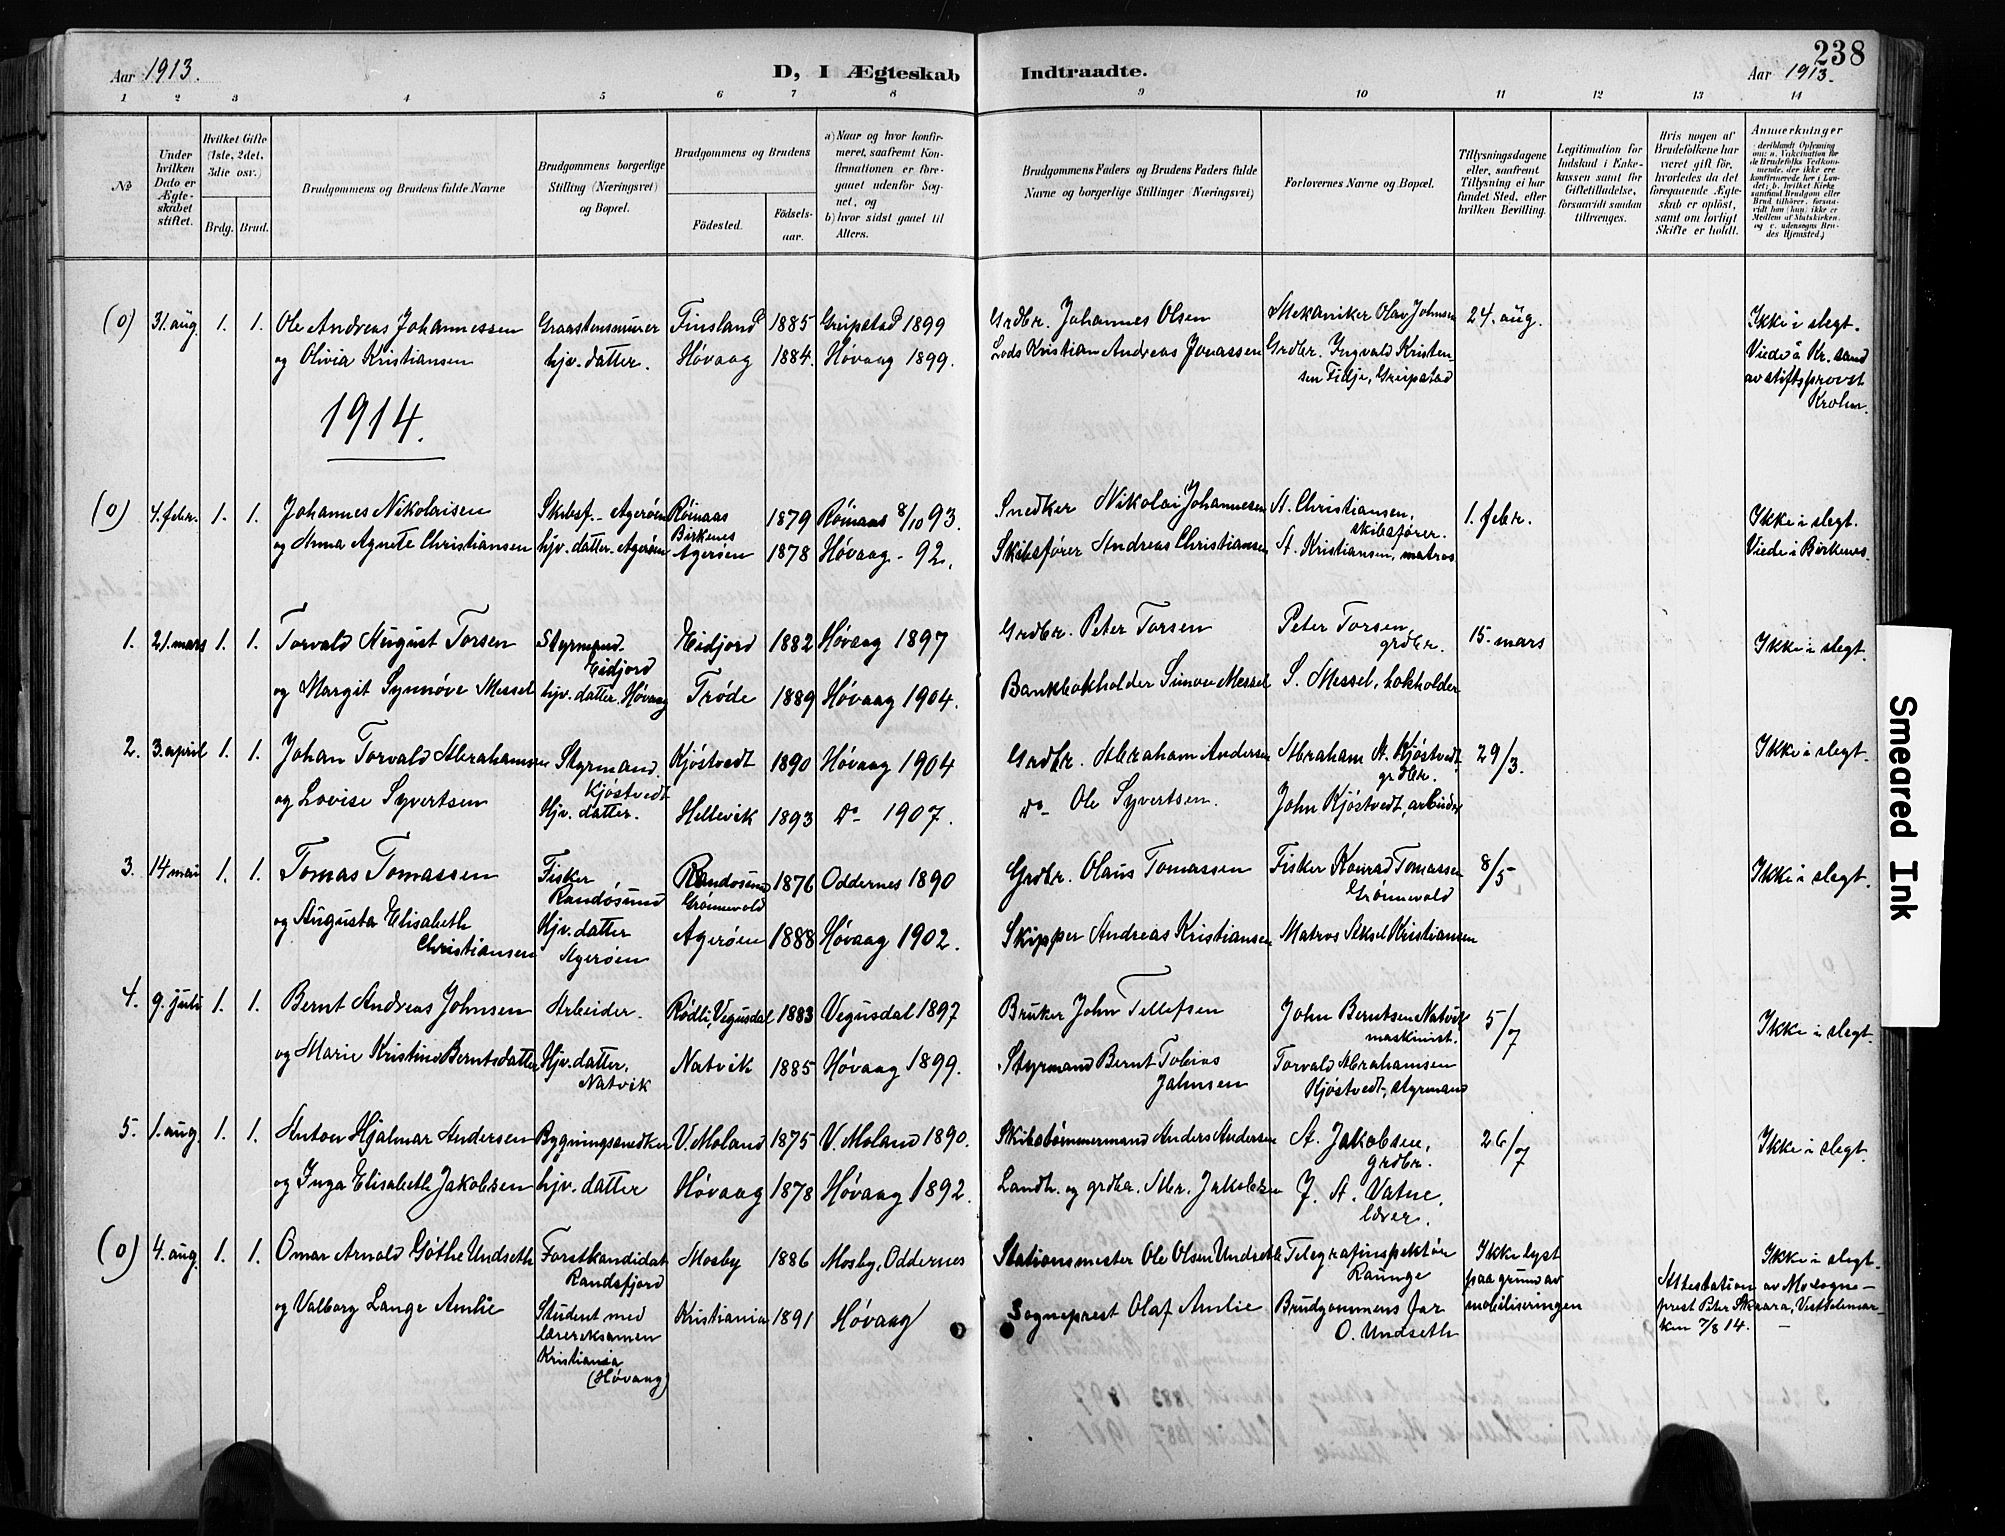 238
Aar 1913.
D, I Ægteskab Indtraadte.
Aar 1913.
1 2 3 4 5 6 7 8 9 10 11 12 13 14
№
Under hvilken Dato er Ægteskabet stiftet.
Hvilket Gifte (1ste, 2det, 3die osv.)
Brdg. Brud.
Brudgommens og Brudens fulde Navne
Brudgommens borgerlige Stilling (Næringsvei) og Bopæl.
Brudgommens og Brudens
Fødested.
Fødselsaar.
a) Naar og hvor konfirmeret, saafremt Konfirmationen er foregaaet udenfor Sognet, og
b) hvor sidst gaaet til Alters.
Brudgommens Faders og Brudens Faders fulde Navne og borgerlige Stillinger (Næringsvei)
Forlovernes Navne og Bopæl.
Tillysningsdagene eller, saafremt Tillysning ei har fundet Sted, efter hvilken Bevilling.
Legitimation for Indskud i Enkekassen samt for Giftetilladelse, forsaavidt saadan tiltrænges.
Hvis nogen af Brudefolkene har været gift før, hvorledes da det foregaaende Ægteskab er opløst, samt om lovligt Skifte er holdt.
Anmerkninger
(deriblandt Oplysning om: a. Vakcination for de Brudefolks Vedkommende, der ikke ere konfirmerede her i Landet; b. hvilket Kirkesamfund Brudgom eller Brud tilhører, forsaavidt han (hun) ikke er Medlem af Statskirken, og c. udensogns Brudes Hjemsted.)
(0) 31. aug. 1. 1. Ole Andreas Johannessen Graastensmurer Finsland 1885 Greipstad 1899 Grdbr. Johannes Olsen Mekaniker Olav Johnsen 24. aug. Ikke i slegt.
og Olivia Kristiansen hjv. datter. Høvaag 1884. Høvaag 1899. Lods Kristian Andreas Jonassen Grdbr. Ingvald Kristensen Fidje, Greipstad Viede i Kr.sand av stiftsprovst Krohn.
1914.
(0) 4. febr. 1. 1. Johannes Nikolaisen Skibsf. Agerøen Røinaas Birkenes 1879 Røinaas 8/10 93. Snedker Nikolai Johannesen A. Christiansen, skibsfører. 1. febr. Ikke i slegt.
og Anna Agnete Christiansen hjv. datter. Agerøen Agerøen 1878 Høvaag - 92. Skibsfører Andreas Christiansen A. Kristiansen, matros Viede i Birkenes.
1. 21. mars 1. 1. Torvald August Torsen Styrmand. Eidjord Eidjord 1882 Høvaag 1897 Grdbr. Peter Torsen Peter Torsen grdbr. 15. mars Ikke i slegt.
og Margit Synnøve Messel hjv. datter. Høvaag Trøde 1889 Høvaag 1904. Bankbokholder Simon Messel S. Messel, bokholder
2. 3. april 1. 1. Johan Torvald Abrahamsen Styrmand. Kjøstvedt Kjøstvedt 1890 Høvaag 1904 Grdbr. Abraham Andersen Abraham A. Kjøstvedt, grdbr. 29/3. Ikke i slegt.
og Lovise Syvertsen Hjv. datter. Hellevik 1893 do 1907. do Ole Syvertsen. John Kjøstvedt, arbeider
3. 14 mai 1. 1. Tomas Tomassen Fisker Randøsund Randøsund Grønnevold 1876 Oddernes 1890 Grdbr. Olaus Tomassen Fisker Konrad Tomassen Grønnevold 8/5 Ikke i slegt.
og Augusta Elisabeth Christiansen Hjv. datter Agerøen Agerøen 1888 Høvaag 1902. Skipper Andreas Kristiansen Matros Aksel Kristiansen
4. 9. juli 1. 1. Bernt Andreas Johnsen Arbeider. Rødli, Vegusdal 1883 Vegusdal 1897 Bruker John Tellefsen John Berntsen Natvik maskinist. 5/7 Ikke i slegt.
og Marie Kristine Berntsdatter Hjv. datter, Natvik Natvik 1885 Høvaag 1899. Styrmand Bernt Tobias Johnsen Torvald Abrahamsen Kjøstvedt, styrmand
5. 1. aug. 1. 1. Anton Hjalmar Andersen Bygningssnedker V. Moland 1875 V. Moland 1890. Skibstømmermand Anders Andersen A. Jakobsen, grdbr. 26/7 Ikke i slegt.
og Inga Elisabeth Jakobsen hjv. datter Høvaag 1878 Høvaag 1892. Landh. og grdbr. Abr. Jakobsen J. A. Vatne, lærer.
(0) 4. aug. 1. 1. Omar Arnold Göthe Undseth Forstkandidat Randsfjord Mosby 1886 Mosby, Oddernes Stationsmester Ole Olsen Undseth Telegrafinspektør Raunge Ikke lyst paa grund av mobiliseringen Ikke i slegt.
og Valborg Lange Amlie Student med lærereksamen Kristiania (Høvaag) Kristiania 1891 Høvaag Sogneprest Olaf Amlie Brudgommens far O. Undseth Attestation av sogneprest Peter Skaara, 7/8 14.
Smeared Ink